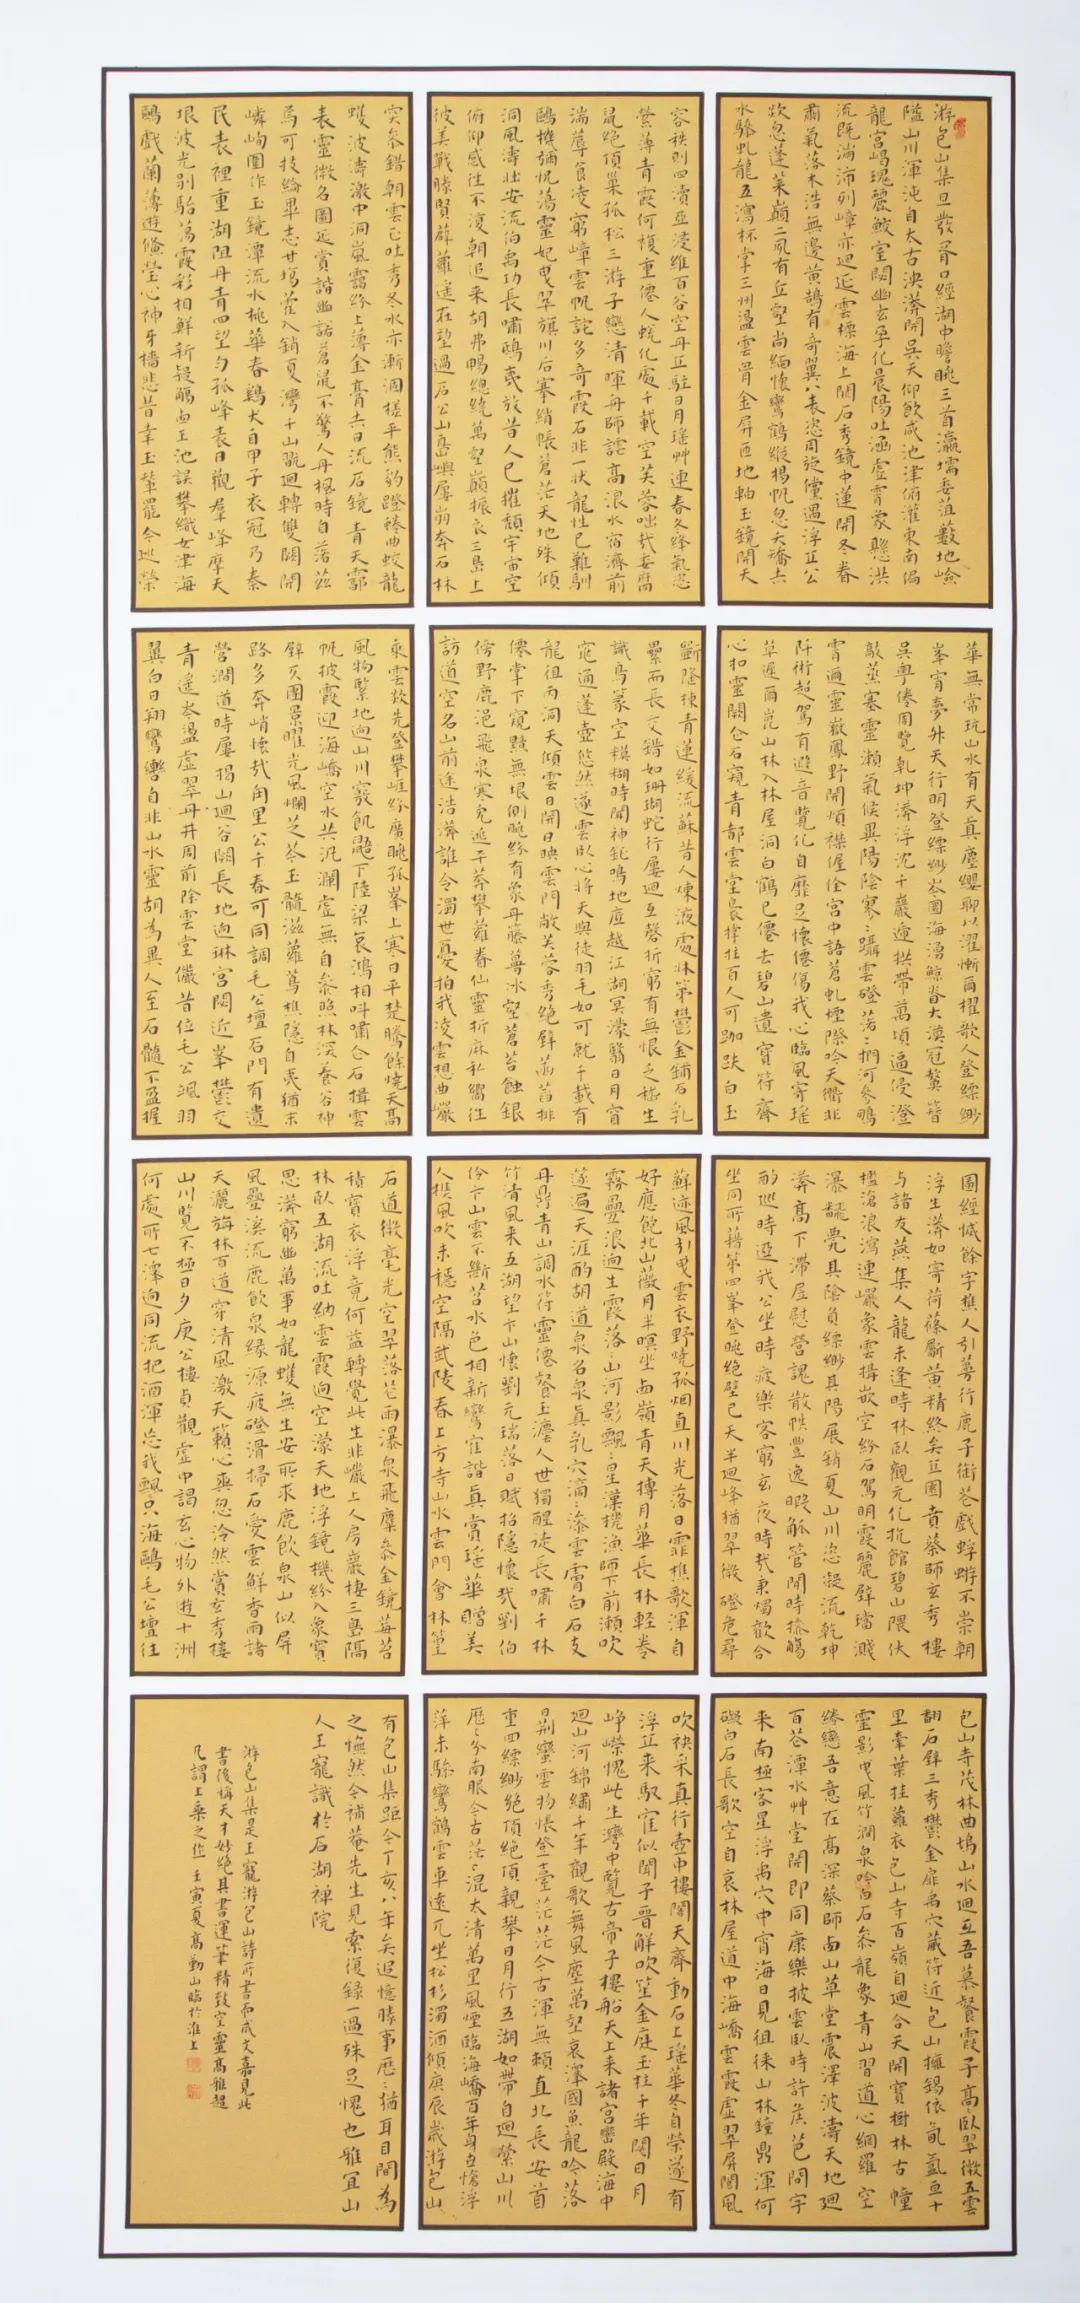 游包山集旦發胥口經湖中瞻眺三首瀛壖委菹藪地嶮
隘山川渾沌自太古泱漭開吳天仰飲咸池津俯灌東南偏
龍宮崵瑰麗鮫室閟幽玄孕化晨陽吐涵虛霄象懸洪
流既湍沛列嶂亦迴延雲標海上闕石秀鏡中蓮開冬眷
肅氣落木浩無邊黃鵠有奇翼八表恣周旋儻遇浮丘公
欲忽蓬萊巔二夙有丘壑尚緬懷鸞鶴縱揚帆忽天矯去
水驂虬龍五瀉杯掌三州盪雲骨金屏匝地軸玉鏡開天
容秩則四瀆亞浸維百谷空丹丘駐日月瑤艸連春冬絳氣恣
縈薄青霞何複重僊人蛻化處千載空芙蓉咄哉委腐
鼠絕頂巢孤松三游子戀清暉舟師詫高浪水宿濟前
湍蓐食凌窮嶂雲帆詭多奇霞石非一狀龍性已難馴
鷗機彌怳蕩靈妃曳翠旗川后搴綃帳蒼茫天地殊傾
洞風濤壯安流伯禹功長嘯鴟夷放昔人已摧頹宇宙空
俯仰感往不復朝追来胡弗暢總繞萬壑巔振衣三島上
彼美戰勝賢薜蘿遙在望過石公山島嶼屢崩奔石林
突參錯朝雲正吐秀冬水亦漸涸槎平熊豹蹬蜷曲蛟龍
蠖波濤激中洞嵐靄紛上薄金膏去日流石鏡青天霩
表靈徵名圖延賞諧幽諾蒼鼠不驚人丹楓時自落茲
焉可投綸畢志甘塢藿入銷夏灣千山翫迴轉雙闕開
嶙峋圍作玉鏡潭流水桃華春鷄犬自甲子衣冠乃秦
民表裡重湖阻丹青四望勻孤峰表日觀羣峰摩天
垠波光別駘蕩霞彩相鮮新疑觴西王池誤攀織女津海
鷗戲蘭薄遊鯈瑩心神牙檣悲昔幸玉輦罷今巡榮
華無常玩山水有天真塵纓聊以濯慚爾櫂歌人登縹緲
峯宵夢外天行明登縹緲岑圍海湧鯨眷大漠冠簪
吳粵倦周覽乾坤漭浮沈千巖遞拱帶萬頃逼侵澄
敲蒸塞靈瀨氣候異陽陰寒寒躡雲磴蕩蕩捫河參鴫
霄邇靈嶽鳳野開煩襟偓佺宮中語蒼虬煙際吟天衢非
阡術超駕有避音覽化自靡足懷僊傷我心臨風寄瑤
草遲爾崑山林入林屋洞白鶴已僊去碧山遺寶符齋
心扣靈闕合石窺青都雲堂㠯撐拄百人可跏趺白玉
斲隆棟青蓮緩流蘇昔人煉液處牀第鬱金鋪石乳
纍而長交錯如珊瑚蛇行屢迴互磬折窮有無恨乏嵇生
識鳥篆空糢糊時聞神鉦鳴地底越江湖冥濛翳日月窅
窕通蓬壺悠然遂雲臥心將天與徒羽毛如可就千載有
龍徂丙洞天傾雲日開日映雲門敞芙蓉秀絕壁菡萏排
僊掌下窺黯無垠側眺紛有象丹藤蔓冰壑蒼苔蝕銀
傍野鹿浥飛泉寒兔逃平莽攀蘿眷仙靈折麻私嚮往
訪道空名山前途浩漭誰令濁世憂拍我凌雲想曲巖
乘雲欻先登攀崕紛廣眺孤峯上寒日平楚騰餘燒天高
風物緊地迥山川竅飢鼯下陸梁哀鴻相叫嘯合石揖雲
帆披霞迎海嶠空水共汎瀾虛無自參照林深養谷神
壁仄團景曜光風爛芝苓玉髓滋蘿蔦樵隱自夷猶末
路多奔峭懷哉角里公千春可同調毛公壇石門有遺
營澗道時屢揭山迴谷闕長地迥琳宮閟近峯鬱交
青遙岑盪虛翠丹井周前除雲堂儼昔位毛公颯羽
翼白日翔鸞轡自非山水靈胡為異人至石髓不盈握
圖經憾餘字樵人引蔓行鹿子銜花戲蜉蝣不崇朝
浮生漭如寄荷蓧斸黃精終矣丘園賁蔡師玄秀樓
与諸友燕集人龍未逢時林臥觀元化抗館碧山隈伏
檻滄浪瀉連巖象雲搆嵌空紛石駕明霞麗壁璫濺
瀑飜甍具陰負縹緲具陽展銷夏山川恣凝流乾坤
漭高下滯居慰營魂散帙豐逸暇觚管閒時擒觴
酌巡時迓我公坐時疲樂客窮玄夜時哉秉燭歡合
坐同所藉第四峯登眺絕壁已天半迴峰猶翠微磴危尋
蘇迹風引曳雲衣野燒孤烟直川光落日霏樵歌渾自
好應飽北山薇月半暝坐西嶺青天摶月華長林輕卷
霧疊浪迥生霞落落山河影飄飄星漢槎漁師下前瀨吹
篴遍天涯酌胡道泉名泉真乳穴滴滴滌雲膚白石支
丹鼎青山調水符靈僊餐玉瀣人世獨醒徒長嘯千林
竹清風来五湖望卞山懷劉元瑞落日賦招隱懷哉劉伯
伶卞山雲不斷苕水色相新鸞宿諧真賞瑤華贈美
人樵風吹未穩空隔武陵春上方寺山水雲門會林篁
石道微毫光空翠落花雨瀑泉飛麋參金鏡莓苔
積寶衣浮竟何益轉覺此生非巖上人房巖棲三島隔
林臥五湖流吐納雲霞迥空濛天地浮鏡機紛入象實
思漭窮幽萬事如龍蠖無生安所求鹿飲泉山似屏
風疊溪流鹿飲泉緣源疲磴滑掃石愛雲鮮香雨諸
天灑旃林百道穿清風激天籟心爽忽泠然賞玄秀樓
山川覽不極日夕庾公樓貞觀虛中謁玄心物外遊十洲
何處所七澤迥同流把酒渾忘我飄飄只海鷗毛公壇往
包山寺茂林曲塢山水迴互吾慕餐霞子高臥翠微五雲
翻石壁三秀鬱金扉禹穴藏符近包山擁錫依氤氳亘十
里牽葉挂蘿衣包山寺百嶺自迴合天開寶樹林古幢
靈影曳風竹澗泉吟白石參龍象青山習道心網羅空
綣戀吾意在高深蔡師西山草堂震澤波濤天地迴
百花潭水艸堂開即同康樂披雲臥時許羨芭問字
来南極客星浮禹穴中宵海日見徂徠山林鐘鼎渾何
礙白石長歌空自哀林屋道中海嶠雲霞虛翠屏閬風
吹袂采真行壺中樓閣天齊動石上瑤華冬自榮遂有
浮丘来馭寉似聞子晉解吹笙金庭玉柱千年閟日月
崢嶸愧此生灣中覽古帝子樓船天上来諸宮巒殿海中
迴山河錦繡千年觀歌舞風塵萬壑哀澤國魚龍吟落
日荆蠻雲物悵登臺茫茫今古渾無賴直北長安首
重四縹緲絕頂絕頂親攀日月行五湖如帶自迴縈山川
歷歷兮南服今古茫茫混太清萬里風煙臨海嶠百年身世愴浮
萍未驂鸞鶴雲車遠兀坐松杉濁酒傾庚辰歲游包山
有包山集距今丁亥八年矣追憶勝事歷歷猶耳目間為
之憮然今補菴先生見索復録一過殊足愧也雅宜山
人王寵識於石湖禪院
游包山集是王寵游包山詩所書而成文嘉見此
書後稱天才妙絕其書運筆精致空靈高雅超
凡謂上乘之作 壬寅夏高勤山臨於淮上